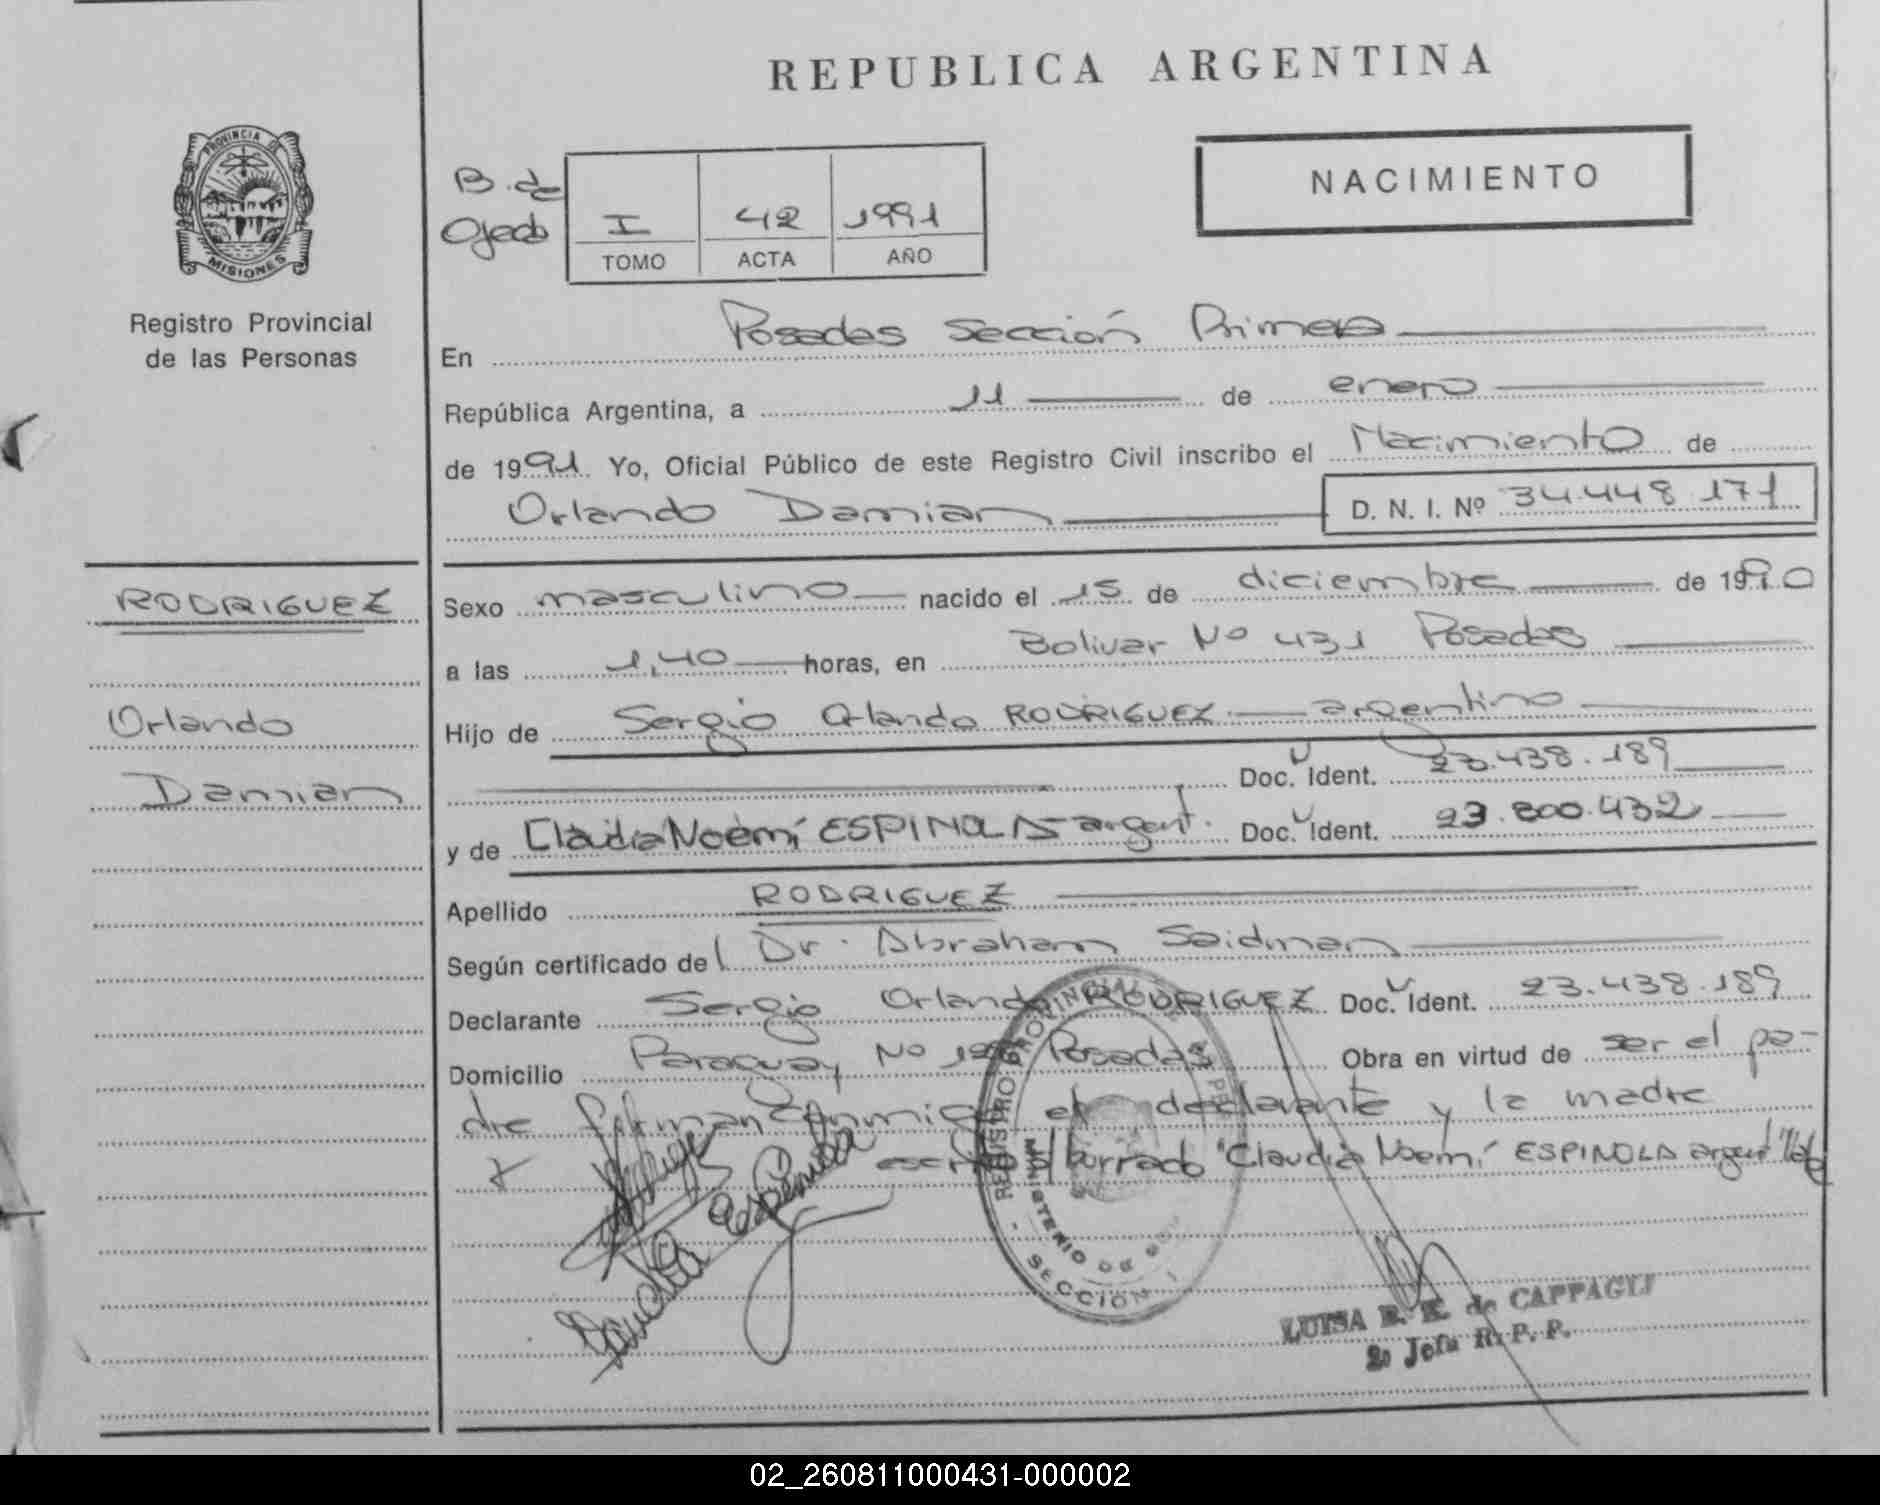 REPUBLICA ARGENTINA
PROVINCIA DE
MISIONES
Registro Provincial
de las Personas
B. de
Ojeda
I 42 1991
TOMO ACTA AÑO
NACIMIENTO
En Posadas Sección Primera
República Argentina, a 11 de enero
de 1991 Yo, Oficial Público de este Registro Civil inscribo el Nacimiento de
Orlando Damian D. N. I. Nº 34.448.171
RODRIGUEZ
Orlando
Damian
Sexo masculino nacido el 15 de diciembre de 1990
a las 1,40 horas, en Bolivar Nº 431 Posadas
Hijo de Sergio Orlando RODRIGUEZ argentino
Doc. Ident. 23.438.189
y de Claudia Noemí ESPINOLA argent. Doc. Ident. 23.800.432
Apellido RODRIGUEZ
Según certificado del Dr. Abraham Saidman
Declarante Sergio Orlando RODRIGUEZ Doc. Ident. 23.438.189
Domicilio Paraguay Nº Posadas Obra en virtud de ser el pa-
dre firman conmigo el declarante y la madre
escrito s/borrado "Claudia Noemí ESPINOLA argent"
Claudia Espinola
REGISTRO PROVINCIAL DE
MINISTERIO DE
SECCION 1
LUISA E. K. de CAPPAGLI
2º Jefa R. P. P.
02_260811000431-000002